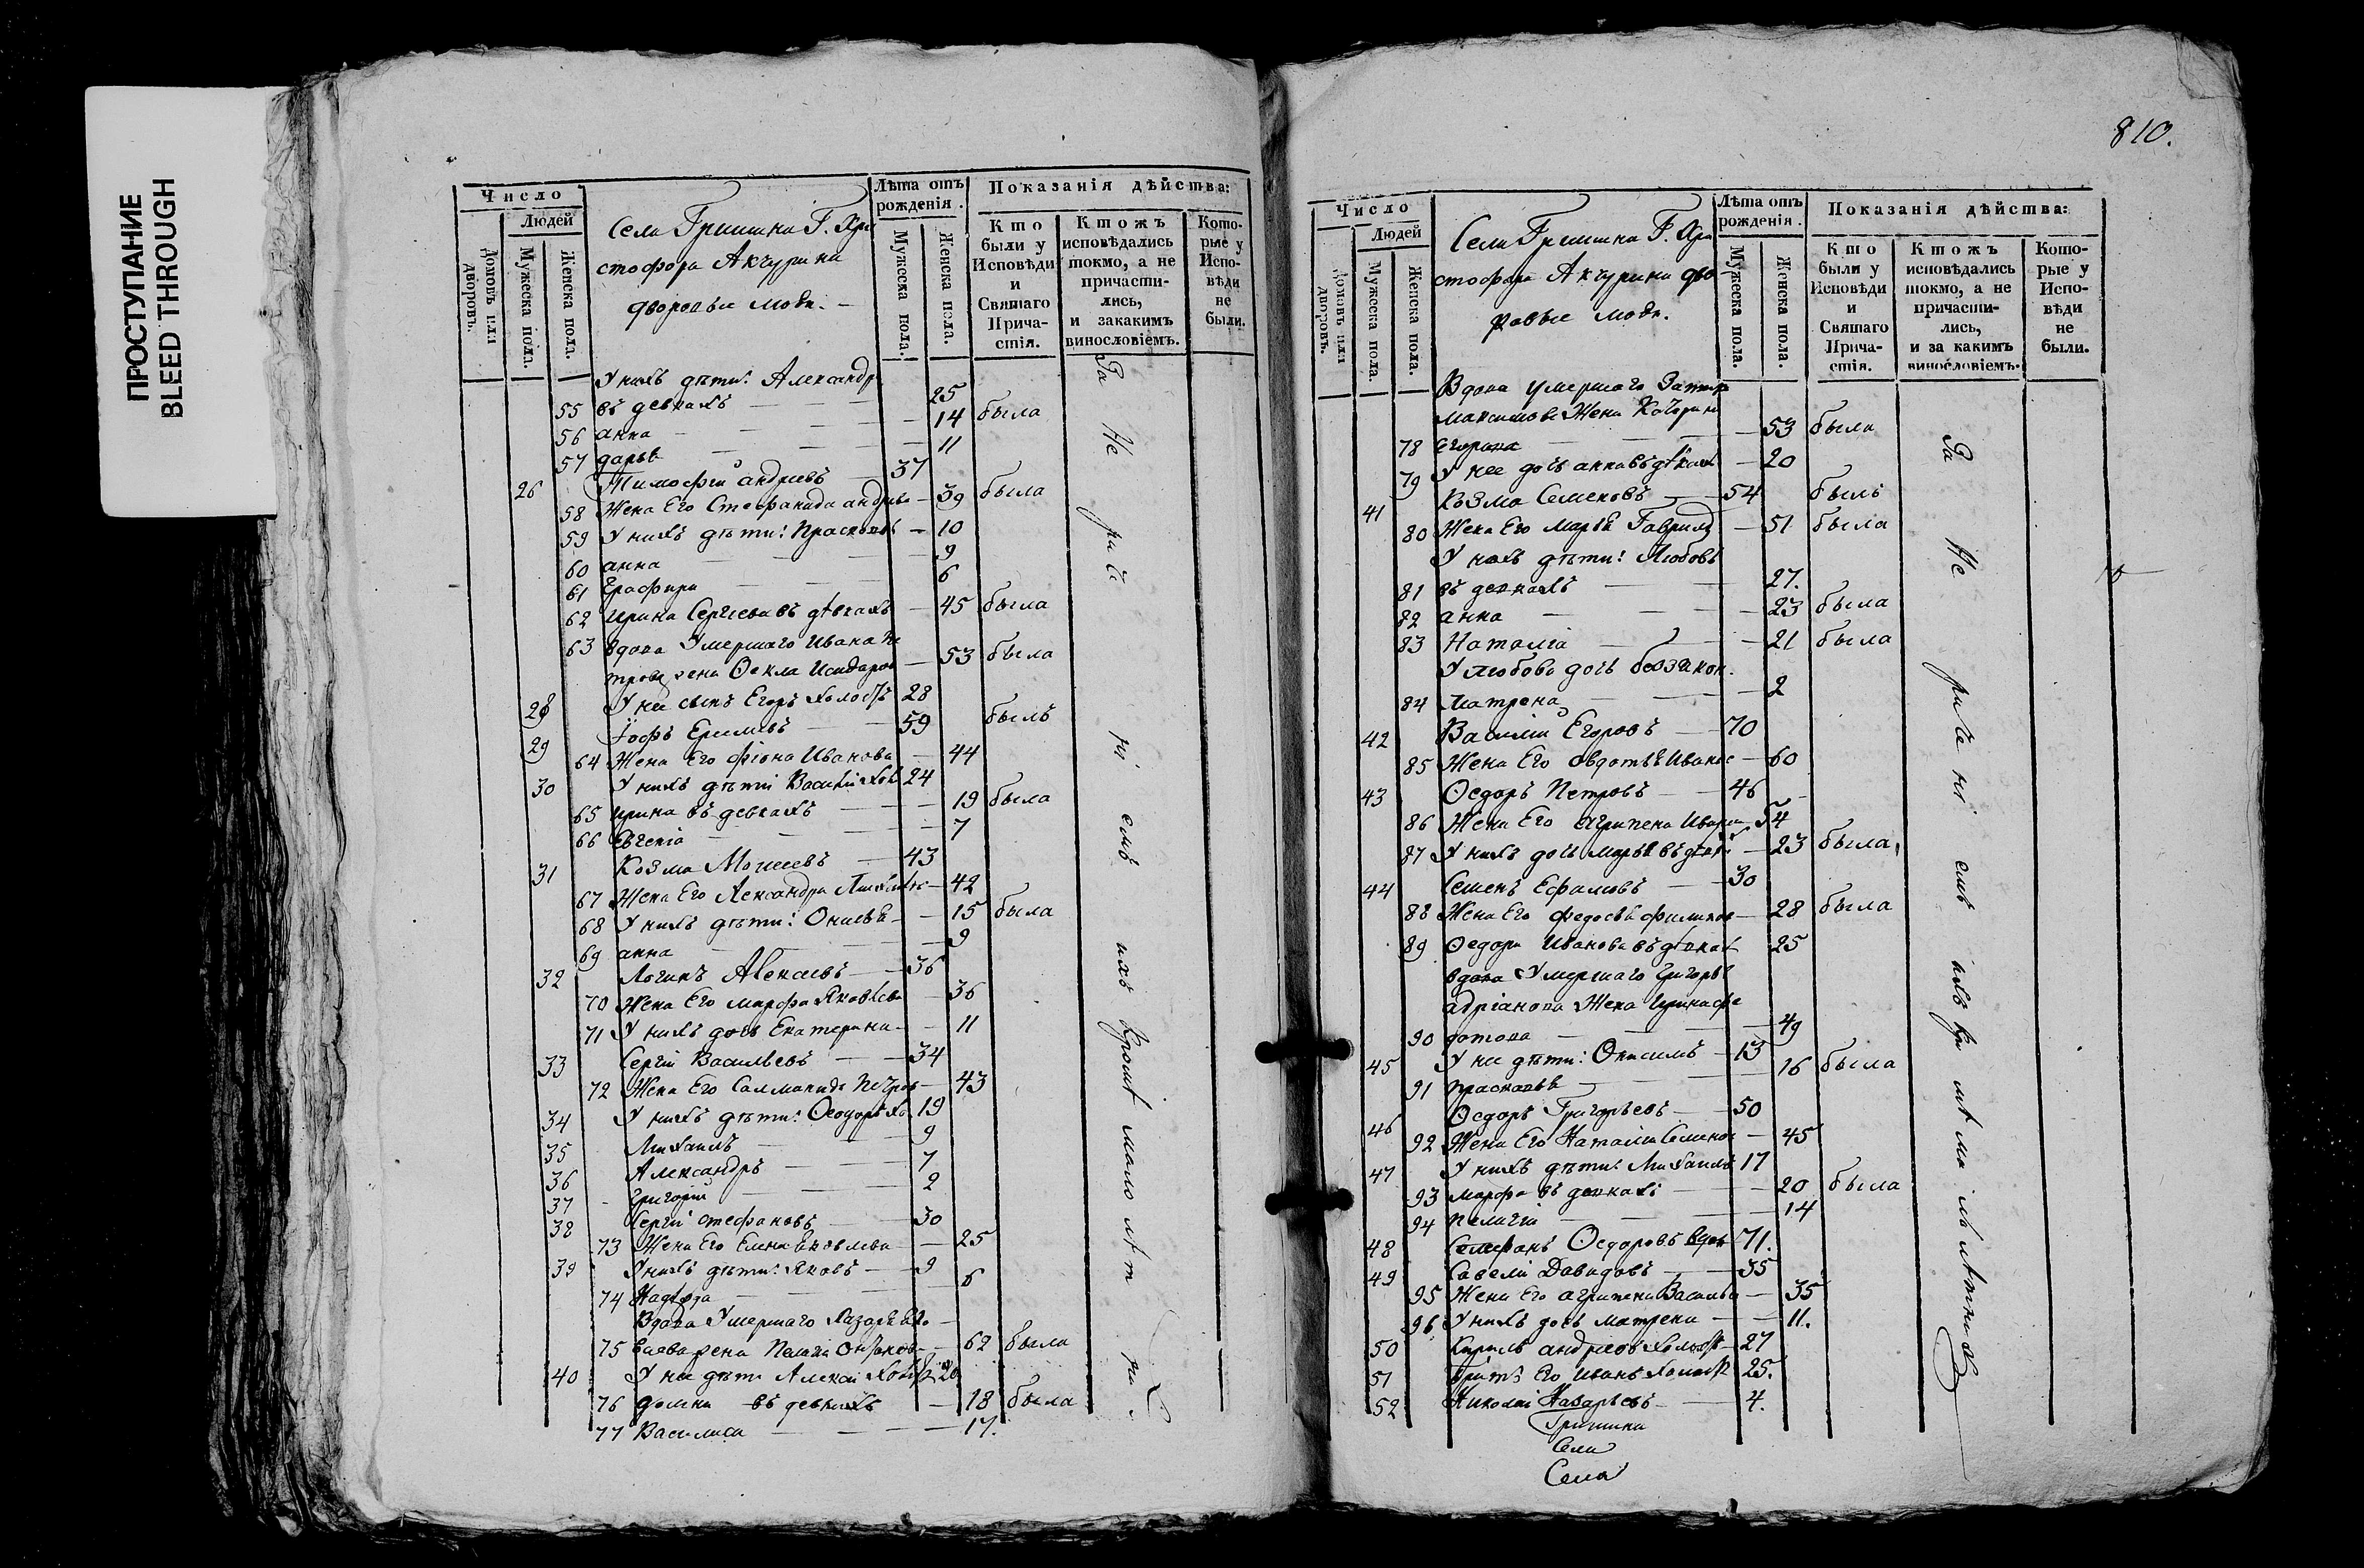 ПРОСТУПАНИЕ
BLEED THROUGH
Число
Людей
Домовъ или дворовъ.
Мужеска пола.
Женска пола.
Села Гришина Г. Хри
стофора Акчурина
дворовые люди.
Лѣта отъ рожденія.
Мужеска пола.
Женска пола.
Показанія дѣйства:
Кто были у Исповѣди и Святаго Прича-стія.
Ктожъ исповѣдались токмо, а не причасти-лись, и закакимъ винословіемъ.
Кото-рые у Испо-вѣди не были.
У нихъ дѣти: Александр
55 въ девкахъ — 25
56 анна — 14 была
57 дарья — 11
26 Тимофѣй андреевъ — 37
58 Жена Его Стефанида андрее — 39 была
59 У нихъ дѣти: Прасковья — 10
60 анна — 9
61 Графира 6
62 ирина Сергѣева въ дѣвкахъ — 45 была
63 вдова Умершаго Ивана Пе
трова жена Ѳекла Исидоров — 53 была
28 У неи сынъ Егоръ холостъ 28
29 59 былъ
64 Жена Его Иванова — 44
30 У нихъ дѣти Василій хол 24
65 ирина въ девкахъ — 19 была
66 Евгенія — 7
31 Козма Моисеевъ — 43
67 Жена Его Александра — 42
68 У нихъ дѣти: — 15 была
69 анна — 9
32 Логинъ Алексеевъ — 36
70 Жена Его марфа Яковлева — 36
71 У нихъ дочь Екатерина — 11
33 Сергій Васильевъ — 34
72 Жена Его Саломанида Петров — 43
34 У нихъ дѣти: Ѳеодоръ хо 19
35 Михаилъ — 9
36 Александръ — 7
37 Григорій — 2
38 Сергій стефановъ — 30
73 Жена Его Елена яковлева — 25
39 У нихъ дѣти: Яковъ — 9
74 Надежда — 6
Вдова Умершаго
75 — 62 была
40 У нее дѣти Алексей холос 20
76 въ девкахъ — 18 была
77 Василиса — 17.
За Не ри че ні емъ ихъ Кромѣ мало лѣт ни
810.
Число
Людей
Домовъ или дворовъ.
Мужеска пола.
Женска пола.
Села Гришина Г. Хри
стофора Акчурина дво
ровые люди.
Лѣта отъ рожденія.
Мужеска пола.
Женска пола.
Показанія дѣйства:
Кто были у Исповѣди и Святаго Прича-стія.
Ктожъ исповѣдались токмо, а не причасти-лись, и за какимъ винословіемъ.
Кото-рые у Испо-вѣди не были.
Вдова умершаго
максимова Жена Катерина
78 Егорова — 53 была
79 У нее дочь анна въ дѣвках — 20
41 Козма Семеновъ — 54 былъ
80 Жена Его Марья Гаврило — 51 была
У нихъ дѣти: Любовь
81 въ девкахъ — 27.
82 анна — 23 была
83 Наталія — 21 была
У любови дочь беззакон.
84 Матрена — 2
42 Василій Егоровъ — 70
85 Жена Его авдотья Иванов — 60
43 Ѳедоръ Петровъ — 46
86 Жена Его агрипена Иванов 54
87 У нихъ дочь марья въ дѣвк — 23 была
44 Семенъ Ефимовъ — 30
88 Жена Его федосья филипов — 28 была
89 Ѳедора Иванова въ дѣвках 25
вдова Умершаго Григорья
адріанова Жена Ирина фе
90 дотова — 49
45 У не дѣти: Онисимъ — 13
91 прасковья — 16 была
46 Ѳедоръ Григорьевъ — 50
92 Жена Его Наталія Семенов — 45
47 У нихъ дѣти: Михаилъ 17
93 марфа въ девкахъ — 20 была
94 пелагія — 14
48 Стефанъ Ѳедоровъ вдов 71.
49 Савелій Давидовъ — 35
95 Жена Его агрипена Василье — 35
96 У нихъ дочь матрена — 11.
50 Кирилъ андреевъ холост — 27
51 Братъ Его Иванъ холост 25.
52 Николай Назарьевъ — 4.
За Не ри че ні емъ ихъ Кр мѣ ма ло лѣтнихъ
Гришина
Села
Села